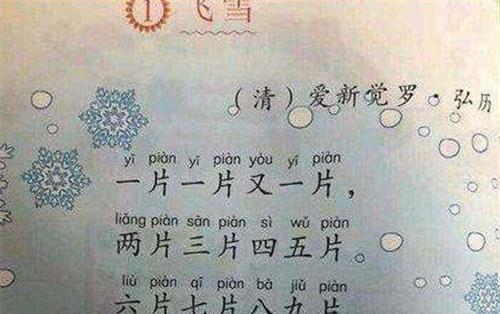 1 飞雪
（清）爱新觉罗·弘历
yī piàn yī piàn yòu yī piàn
一片一片又一片，
liǎng piàn sān piàn sì wǔ piàn
两片三片四五片。
liù piàn qī piàn bā jiǔ piàn
六片七片八九片